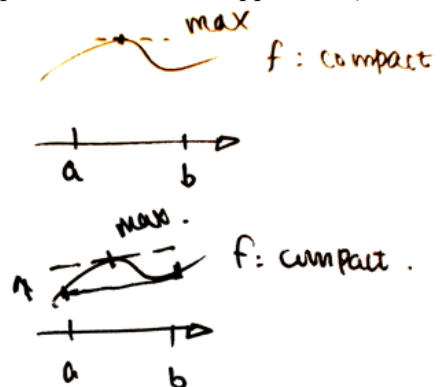 max
f : compact
a b
max.
f: compact.
a b